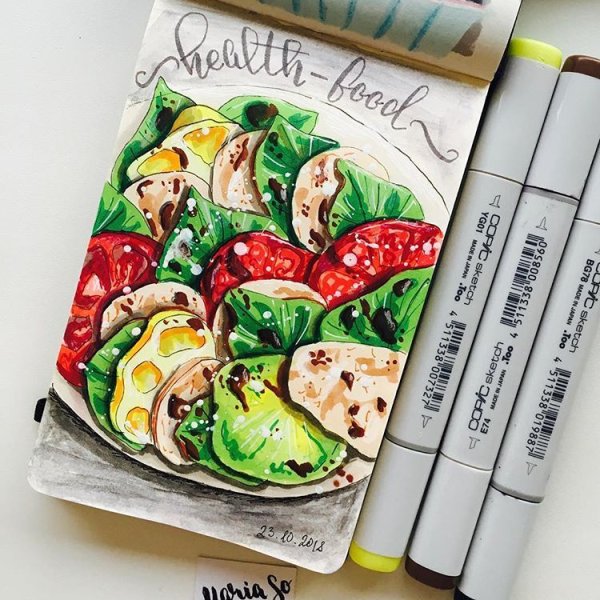 health-food
23.10.2018
Maria So
YG01
COPIC sketch
MADE IN JAPAN .Too
4 511338 007327
E74
COPIC sketch
MADE IN JAPAN .Too
4 511338 008560
BG78
MADE IN JAPAN .Too
4 511338 019887